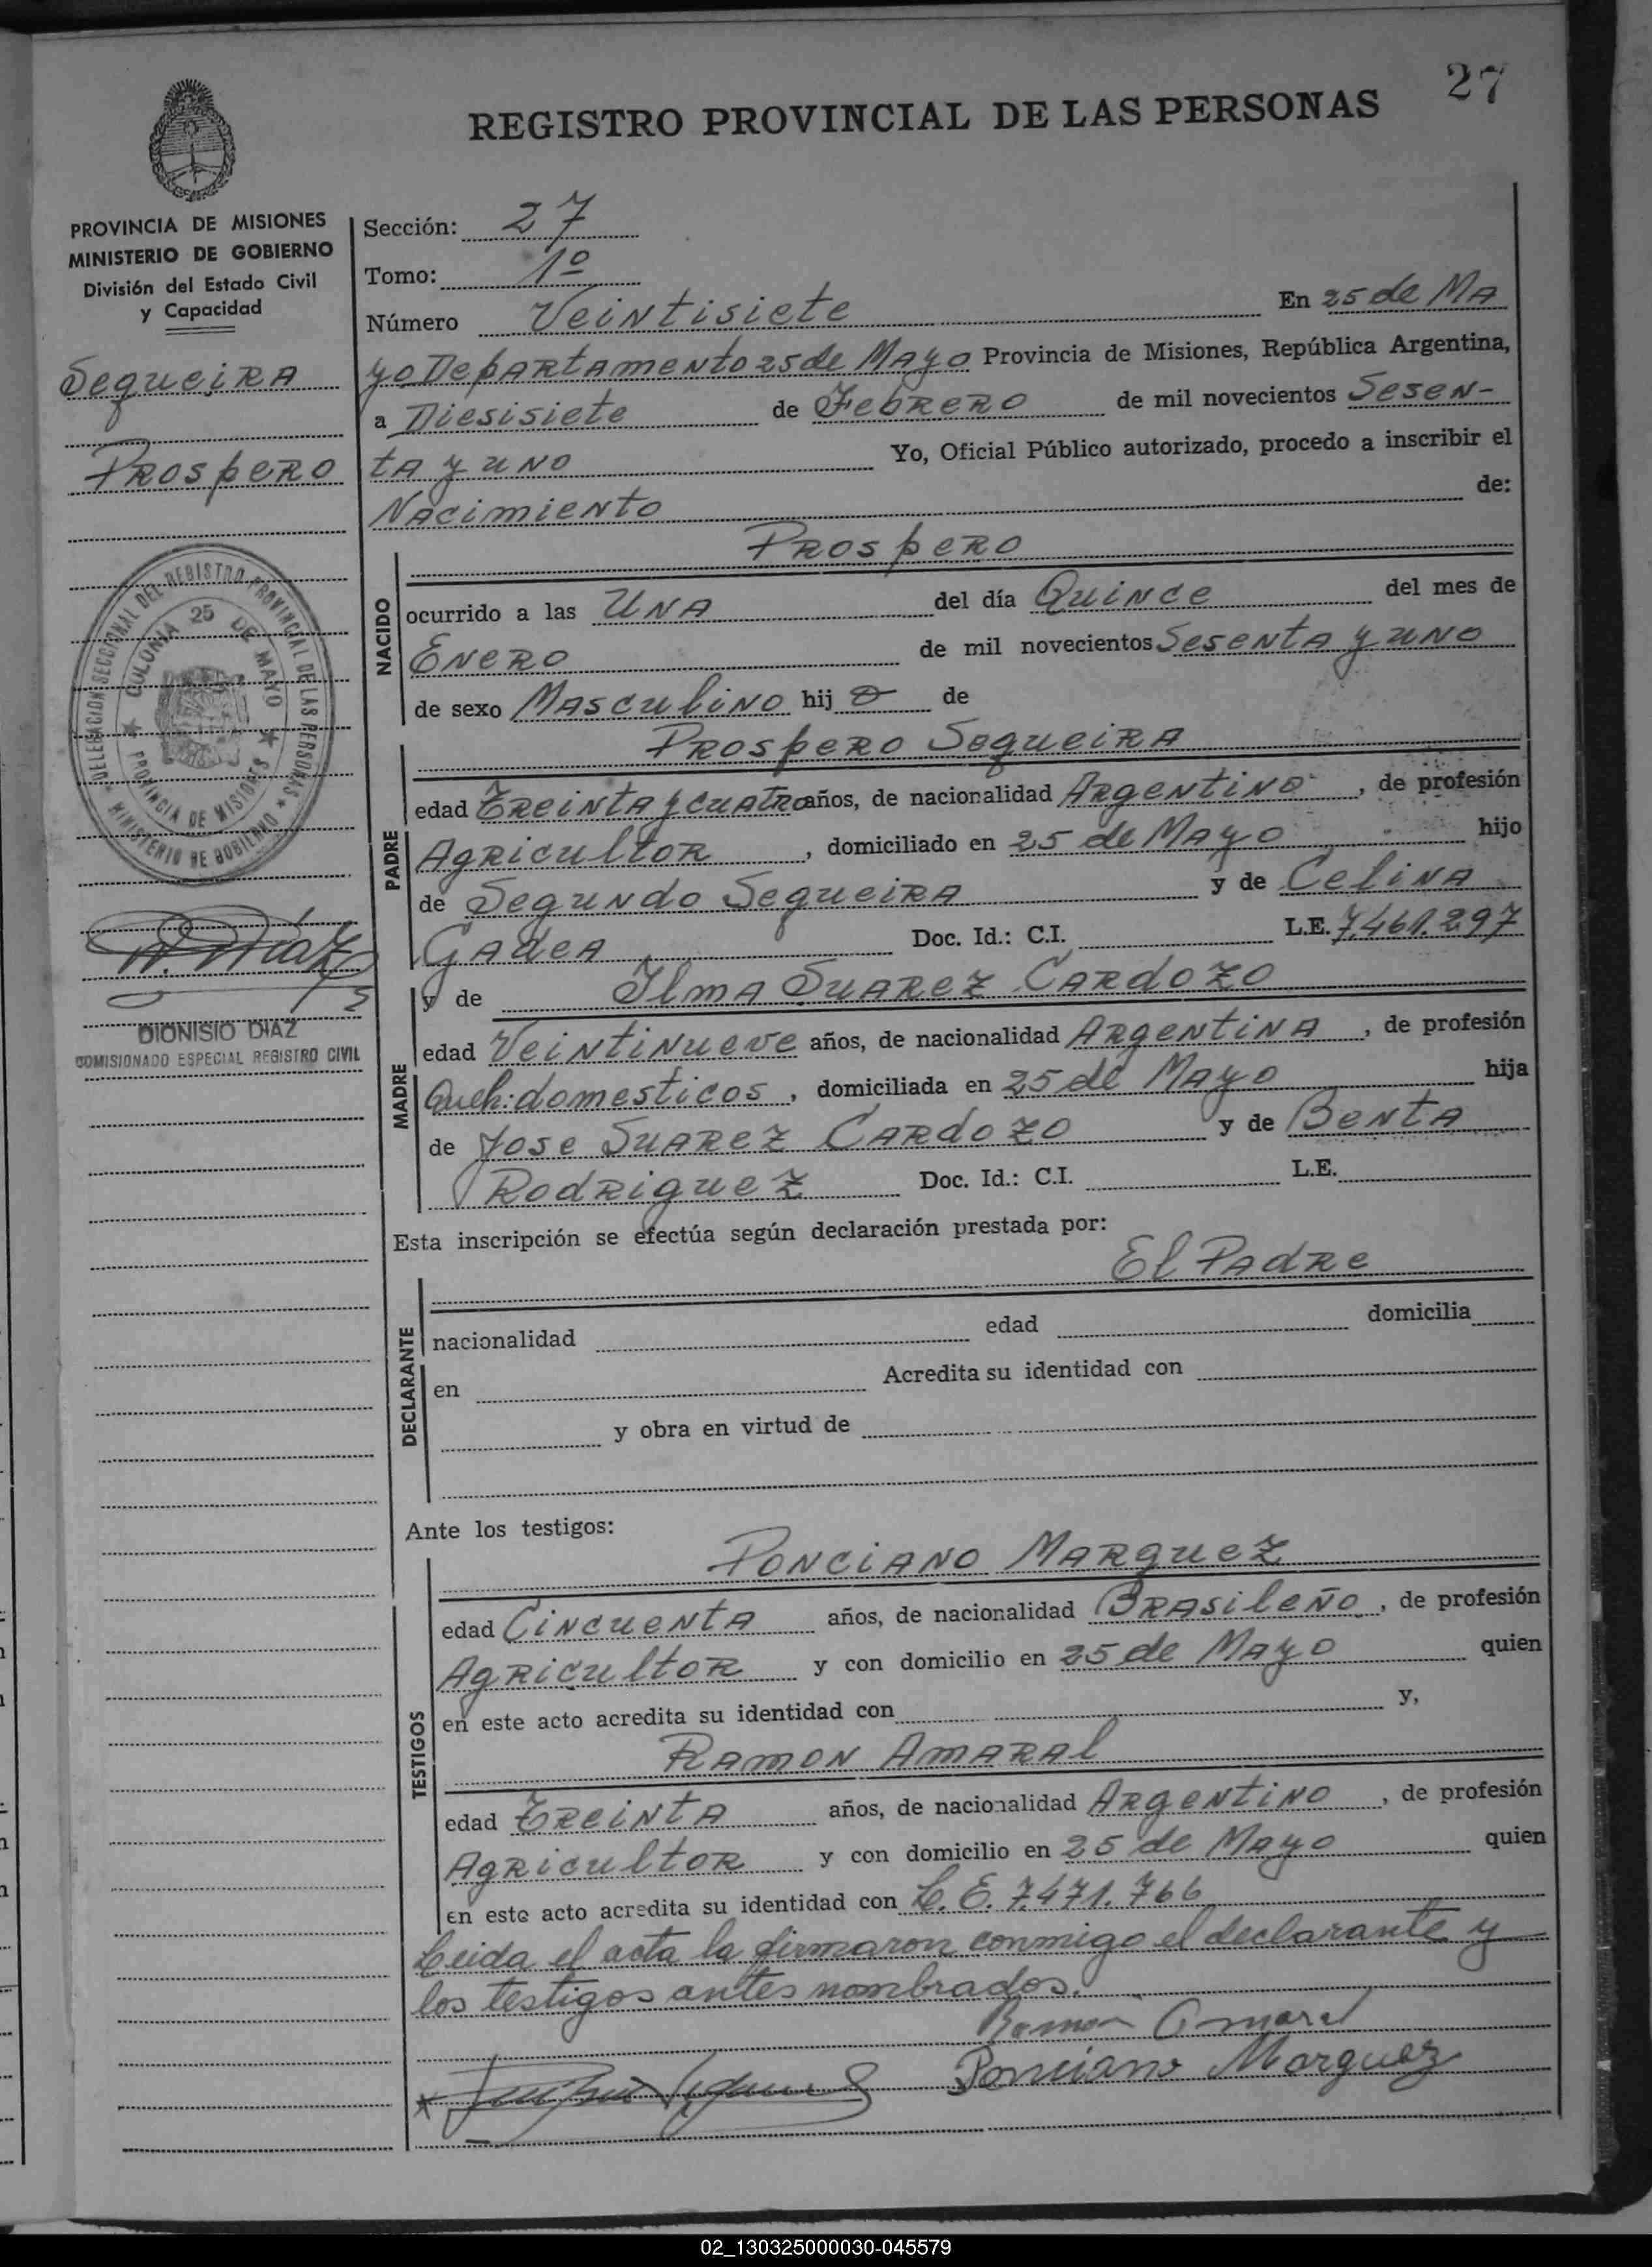 27
REGISTRO PROVINCIAL DE LAS PERSONAS
PROVINCIA DE MISIONES
MINISTERIO DE GOBIERNO
División del Estado Civil
y Capacidad
Sequeira
Prospero
DELEGACION SECCIONAL DEL REGISTRO PROVINCIAL DE LAS PERSONAS
MINISTERIO DE GOBIERNO
COLONIA 25 DE MAYO
PROVINCIA DE MISIONES
D. Diaz
DIONISIO DIAZ
COMISIONADO ESPECIAL REGISTRO CIVIL
Sección: 27
Tomo: 1º
Número Veintisiete En 25 de Ma
yo Departamento 25 de Mayo Provincia de Misiones, República Argentina,
a Diesisiete de Febrero de mil novecientos Sesen-
ta y uno Yo, Oficial Público autorizado, procedo a inscribir el
Nacimiento de:
NACIDO
Prospero
ocurrido a las Una del día Quince del mes de
Enero de mil novecientos Sesenta y uno
de sexo Masculino hij o de
PADRE
Prospero Sequeira
edad Treinta y cuatro años, de nacionalidad Argentino, de profesión
Agricultor, domiciliado en 25 de Mayo hijo
de Segundo Sequeira y de Celina
Gadea Doc. Id.: C.I. L.E. 7.461.297
MADRE
y de Ilma Suarez Cardozo
edad Veintinueve años, de nacionalidad Argentina, de profesión
Queh: domesticos, domiciliada en 25 de Mayo hija
de Jose Suarez Cardozo y de Benta
Rodriguez Doc. Id.: C.I. L.E.
Esta inscripción se efectúa según declaración prestada por:
DECLARANTE
El Padre
nacionalidad edad domicilia
en Acredita su identidad con
y obra en virtud de
Ante los testigos:
TESTIGOS
Ponciano Marquez
edad Cincuenta años, de nacionalidad Brasileño, de profesión
Agricultor y con domicilio en 25 de Mayo quien
en este acto acredita su identidad con y,
Ramon Amaral
edad Treinta años, de nacionalidad Argentino, de profesión
Agricultor y con domicilio en 25 de Mayo quien
en este acto acredita su identidad con L.E. 7.471.766
Leida el acta la firmaron conmigo el declarante y
los testigos antes nombrados.
Ramon Amaral
Ponciano Marquez
02_130325000030-045579